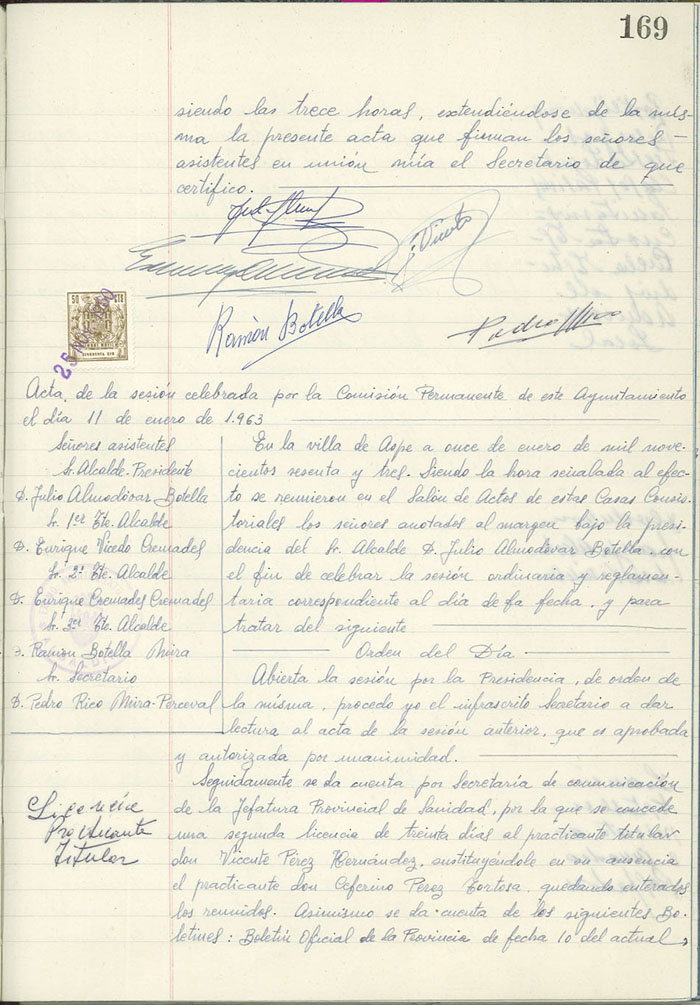 169
siendo las trece horas, extendiéndose de la mis-
ma la presente acta que firman los señores —
asistentes en unión mía el Secretario de que
certifico.
J. Vicedo
Ramón Botella
Pedro Rico
50 CTS
Acta, de la sesión celebrada por la Comisión Permanente de este Ayuntamiento
el día 11 de enero de 1.963
Señores asistentes
Sr. Alcalde-Presidente
D. Julio Almodóvar Botella
Sr. 1er Tte. Alcalde
D. Enrique Vicedo Cremades
Sr. 2º Tte. Alcalde
D. Enrique Cremades Cremades
Sr. 3er Tte. Alcalde
D. Ramón Botella Mira
Sr. Secretario
D. Pedro Rico Mira-Perceval
En la villa de Aspe a once de enero de mil nove-
cientos sesenta y tres. Siendo la hora señalada al efec-
to se reunieron en el Salón de Actos de estas Casas Consis-
toriales los señores anotados al margen bajo la presi-
dencia del Sr. Alcalde D. Julio Almodóvar Botella, con
el fin de celebrar la sesión ordinaria y reglamen-
taria correspondiente al día de la fecha, y para
tratar del siguiente
Orden del Día
Abierta la sesión por la Presidencia, de orden de
la misma, procedo yo el infrascrito Secretario a dar
lectura al acta de la sesión anterior, que es aprobada
y autorizada por unanimidad.
Licencia
Practicante
Titular
Seguidamente se da cuenta por Secretaría de comunicación
de la Jefatura Provincial de Sanidad, por la que se concede
una segunda licencia de treinta días al practicante titular
don Vicente Pérez Hernández, sustituyéndole en su ausencia
el practicante don Ceferino Pérez Tortosa, quedando enterados
los reunidos. Asimismo se da cuenta de los siguientes Bo-
letines: Boletín Oficial de la Provincia de fecha 10 del actual,